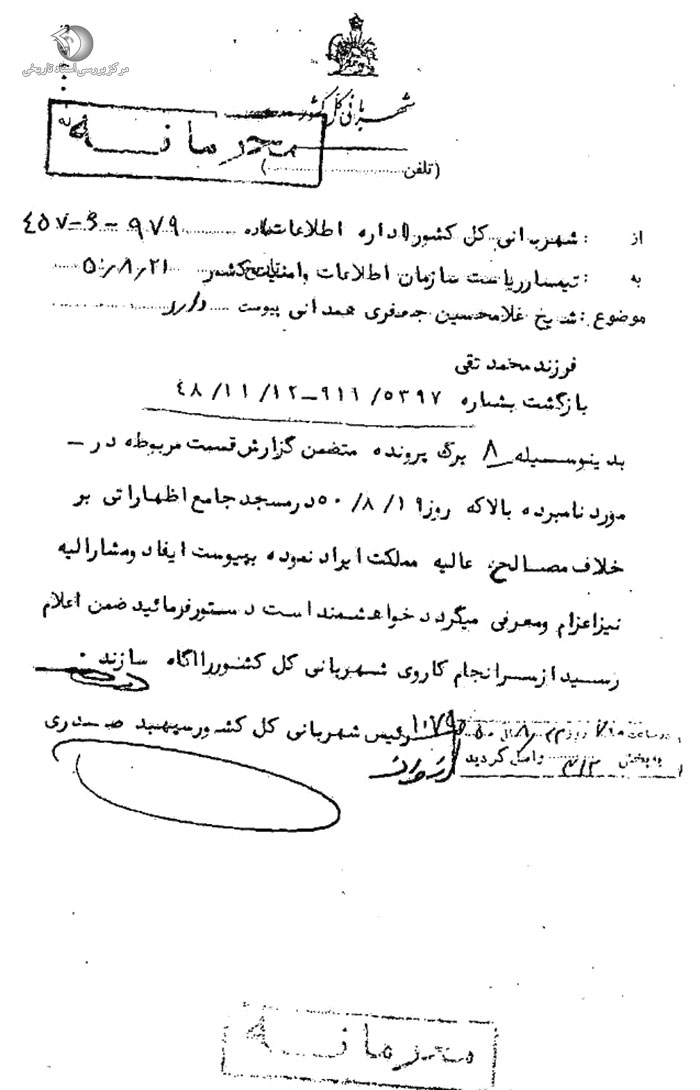 مرکز بررسی اسناد تاریخی
شهربانی کل کشور
محرمانه
(تلفن ............)
از : شهربانی کل کشور اداره اطلاعات شماره ۹۷۹-۶-۴۵۷
به : تیمسار ریاست سازمان اطلاعات وامنیت کشور تاریخ ۵۰/۸/۲۱
موضوع : شیخ غلامحسین جعفری همدانی پیوست دارد
فرزند محمد تقی
بازگشت بشماره ۵۳۹۷/ ۹۱۱-۴۸/۱۱/۱۲
بدینوسیله ۸ برگ پرونده متضمن گزارش قسمت مربوطه در -
مورد نامبرده بالا که روز ۵۰/۸/۱۹ در مسجد جامع اظهاراتی بر
خلاف مصالح عالیه مملکت ایراد نموده بپیوست ایفاد ومشارالیه
نیز اعزام ومعرفی میگردد خواهشمند است دستور فرمائید ضمن اعلام
رسید از سرانجام کار وی شهربانی کل کشور را آگاه سازند .
رئیس شهربانی کل کشور سپهبد صمدری
ساعت روز
به بخش ۳۱۲ واصل گردید
محرمانه